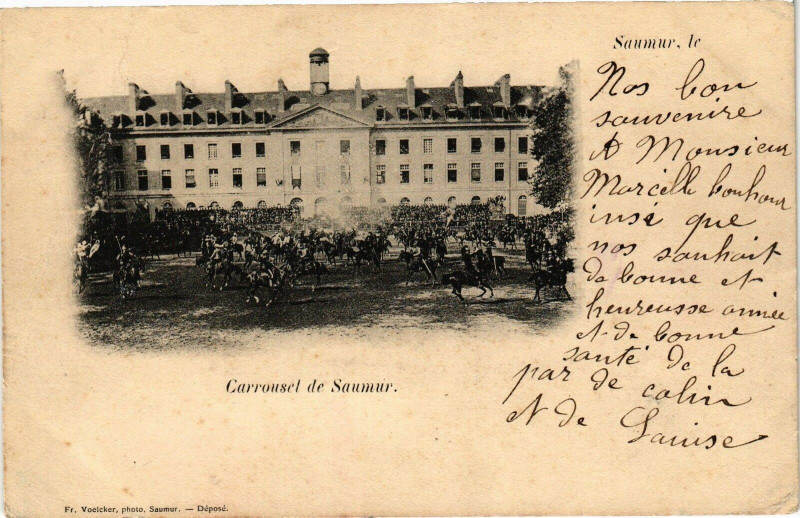 Saumur, le
Nos bon
souvenire
A Monsieur
Marcelle bonhour
insi que
nos souhait
de bonne et
heureusse année
et de bonne
santé de la
par de colin
et de Louise
Carrousel de Saumur.
Fr. Voelcker, photo, Saumur. — Déposé.